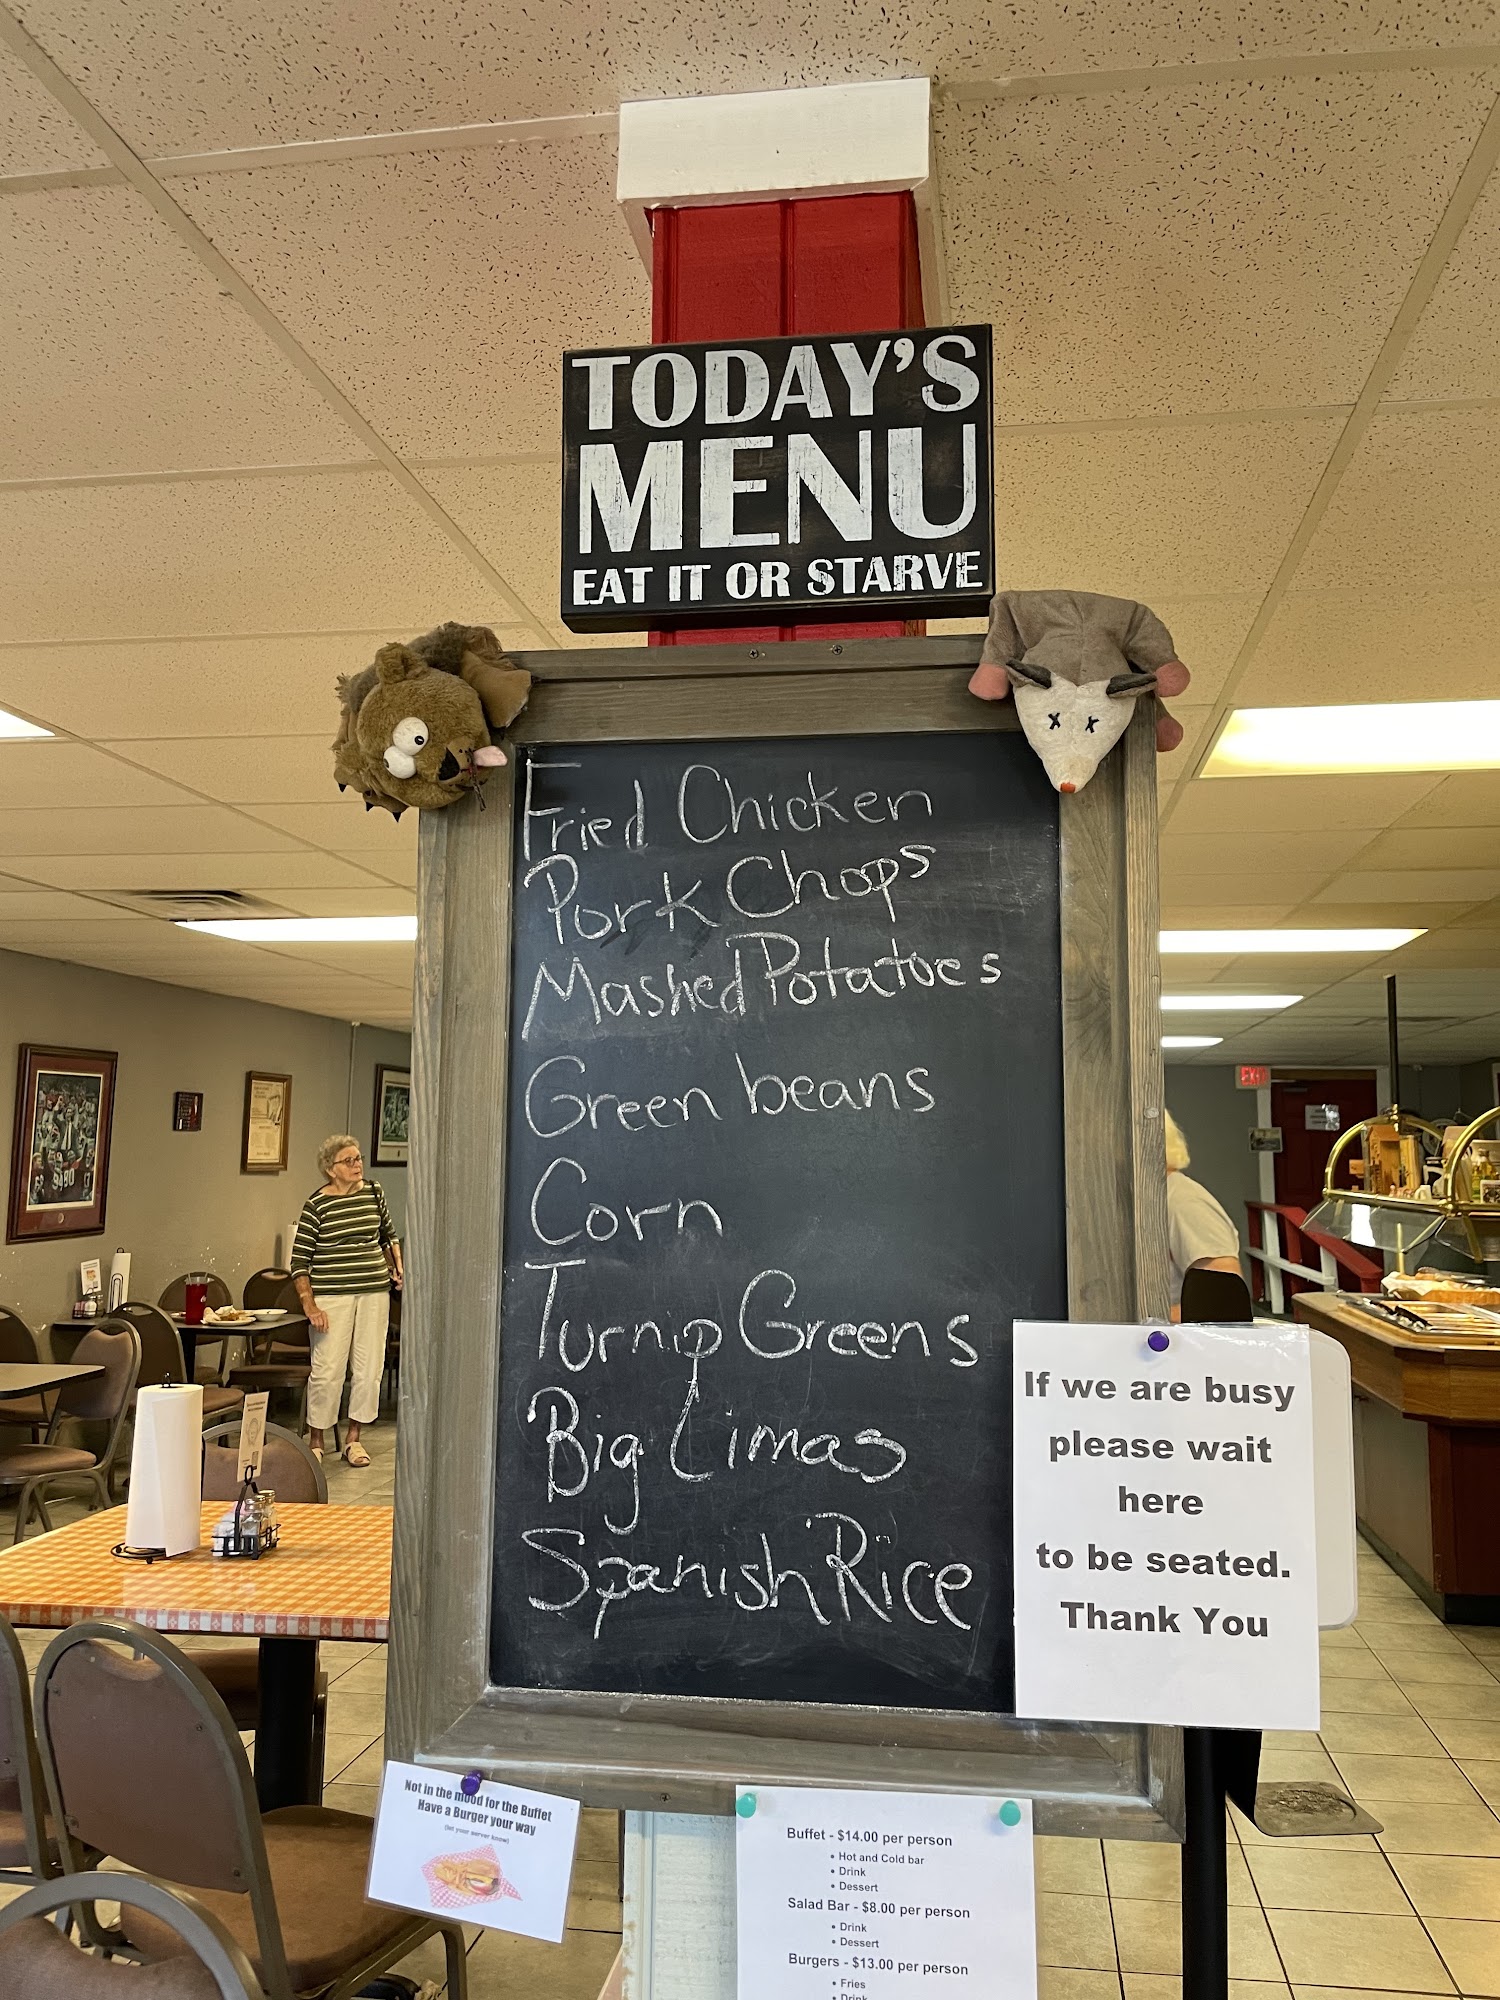 TODAY'S
MENU
EAT IT OR STARVE
Fried Chicken
Pork Chops
Mashed Potatoes
Green beans
Corn
Turnip Greens
Big Limas
Spanish Rice
If we are busy
please wait
here
to be seated.
Thank You
Not in the mood for the Buffet
Have a Burger your way
(let your server know)
Buffet - $14.00 per person
• Hot and Cold bar
• Drink
• Dessert
Salad Bar - $8.00 per person
• Drink
• Dessert
Burgers - $13.00 per person
• Fries
• Drink
EXIT